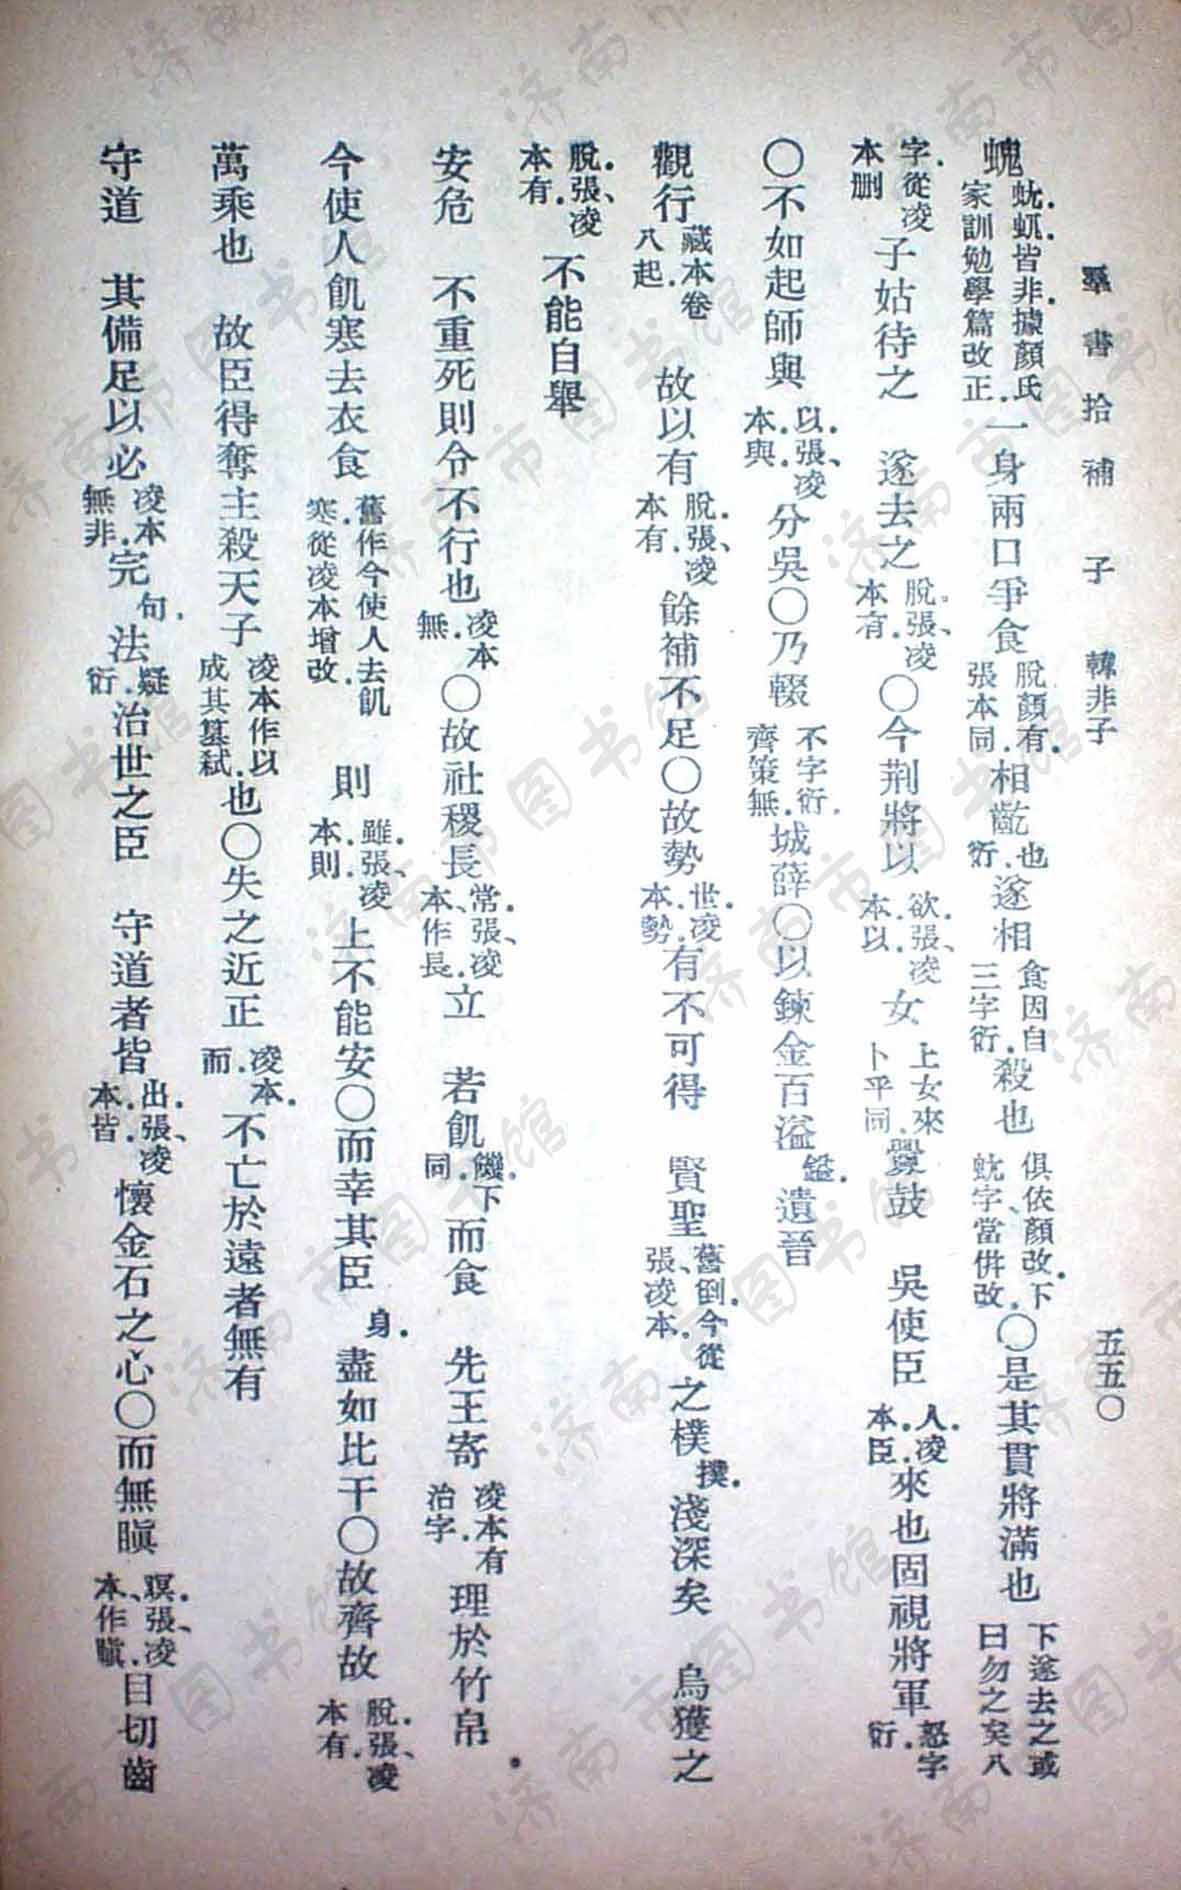 羣書拾補 子 韓非子 五五〇
螝蚘蚖皆非.據顏氏家訓勉學篇改正.一身兩口爭食脫.顏有.張本同.相齕也衍.遂相食因自三字衍.殺也俱依顏改.下蚘字、當併改.〇是其貫將滿也下遂去之或曰勿之矣八
字.從凌本刪子姑待之 遂去之脫.張、凌本有.〇今荆將以欲.張、凌本以.女上女來卜平同.釁鼓 吳使臣人.凌本臣.來也固視將軍怒字衍.
〇不如起師與以.張、凌本與.分吳〇乃輟不字衍.齊策無.城薛〇以鍊金百溢鎰.遺晉
觀行藏本卷八起. 故以有脫.張、凌本有.餘補不足〇故勢世.凌本勢.有不可得 賢聖舊倒.今從張、凌本.之樸撲.淺深矣 烏獲之
脫.張、凌本有.不能自舉
安危 不重死則令不行也凌本無.〇故社稷長常.張、凌本、作長.立 若飢饑.下同.而食 先王寄凌本有治字.理於竹帛
今使人飢寒去衣食舊作今使人去飢寒.從凌本增改. 則雖.張、凌本則.上不能安〇而幸其臣身.盡如比干〇故齊故脫.張、凌本有.
萬乘也 故臣得奪主殺天子凌本作以成其墓弑.也〇失之近正凌本.而.不亡於遠者無有
守道 其備足以必凌本無非.完句.法疑衍.治世之臣 守道者皆出.張、凌本.皆.懷金石之心〇而無瞋瞑.張、凌本、作瞋.目切齒